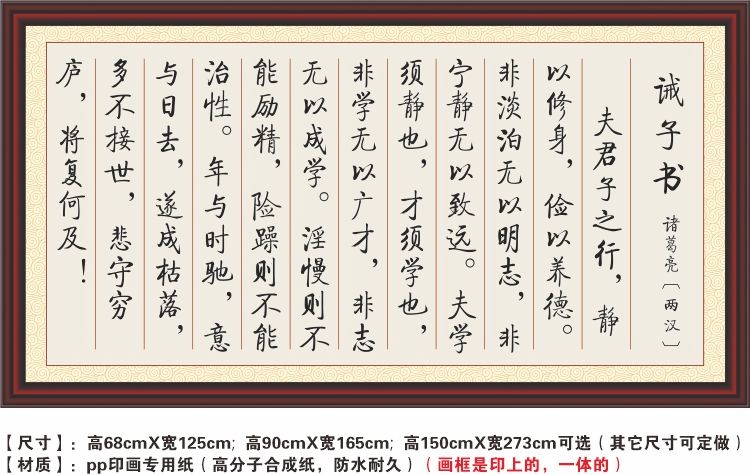 诫子书 诸葛亮〔两汉〕
夫君子之行，静
以修身，俭以养德。
非淡泊无以明志，非
宁静无以致远。夫学
须静也，才须学也，
非学无以广才，非志
无以成学。淫慢则不
能励精，险躁则不能
治性。年与时驰，意
与日去，遂成枯落，
多不接世，悲守穷
庐，将复何及！
【尺寸】：高68cmX宽125cm; 高90cmX宽165cm; 高150cmX宽273cm可选（其它尺寸可定做）
【材质】：pp印画专用纸（高分子合成纸，防水耐久）（画框是印上的，一体的）